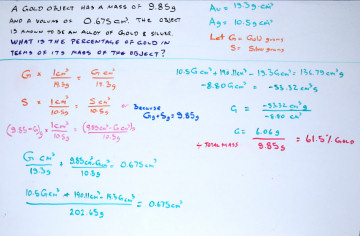 A GOLD OBJECT HAS A MASS OF 9.85g
AND A VOLUME OF 0.675cm³. THE OBJECT
IS KNOWN TO BE AN ALLOY OF GOLD & SILVER.
WHAT IS THE PERCENTAGE OF GOLD IN
TERMS OF ITS MASS OF THE OBJECT?
Au = 19.3g·cm³
Ag = 10.5g·cm³
Let G = Gold grams
S = Silver grams
G × 1cm³/19.3g = G cm³/19.3
S × 1cm³/10.5g = S cm³/10.5 or BECAUSE Gg+Sg = 9.85g
(9.85-G)g × 1cm³/10.5g = (9.85cm³-Gcm³)/10.5
G cm³/19.3 + 9.85cm³-Gcm³/10.5 = 0.675cm³
202.65g = 0.675cm³
-8.80G cm³ = -53.32cm³
G = -53.32cm³/-8.80 cm³
G = 6.06g
÷ TOTAL MASS 9.85g = 61.5% GOLD